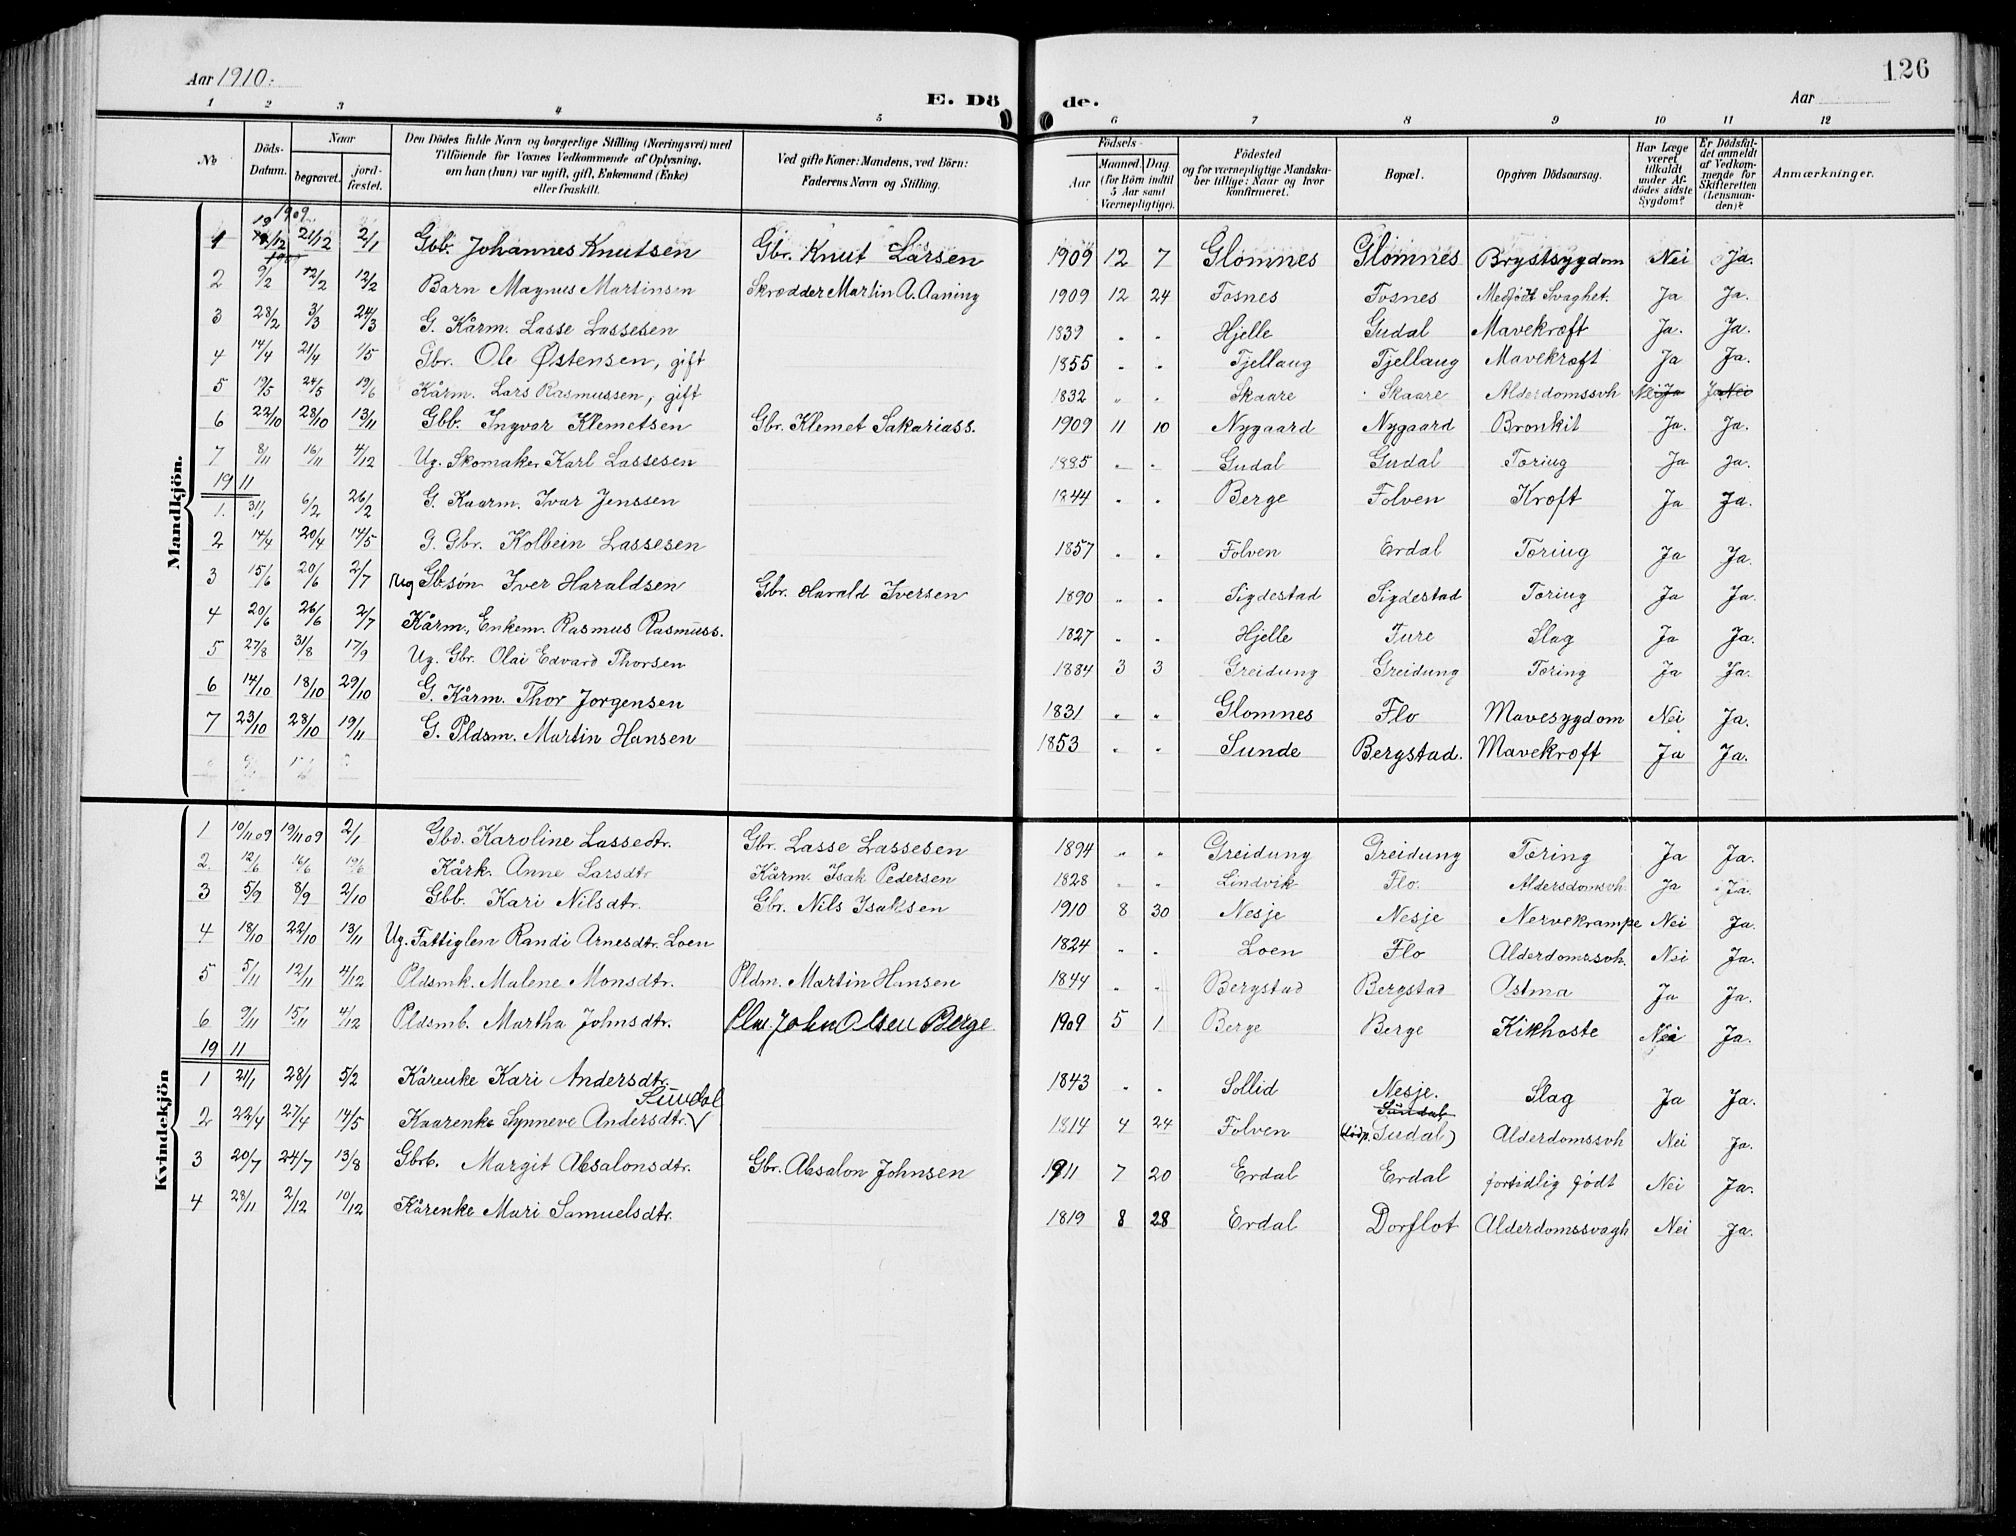 Aar 1910.
126
E. Dö de.
Aar
1 2 3 4 5 6 7 8 9 10 11 12
No
Döds-Datum.
Naar
begravet.
jordfæstet.
Den Dödes fulde Navn og borgerlige Stilling (Næringsvei) med Tilföiende for Voxnes Vedkommende af Oplysning, om han (hun) var ugift, gift, Enkemand (Enke) eller fraskilt.
Ved gifte Koner: Mandens, ved Börn: Faderens Navn og Stilling.
Födsels-
Aar
Maaned. Dag.
(for Börn indtil 5 Aar samt Værnepligtige).
Födested og for værnepligtige Mandskaber tillige: Naar og hvor konfirmeret.
Bopæl.
Opgiven Dödsaarsag.
Har Læge været tilkaldt under Afdödes sidste Sygdom?
Er Dödsfaldet anmeldt af Vedkommende for Skifteretten (Lensmanden)?
Anmærkninger.
Mandkjön.
1909
1 19/12 21/12 2/1 Gbb. Johannes Knutsen Gbr. Knut Larsen 1909 12 7 Glomnes Glomnes Brystsygdom Nei Ja.
2 9/2 12/2 12/2 Barn Magnus Martinsen Skrædder Martin A. Aaning 1909 12 24 Tosnes Tosnes Medfödt Svaghet. Ja Ja.
3 28/2 3/3 24/3 G. Kårm. Lasse Lassesen 1839 " " Hjelle Gudal Mavekræft Ja. Ja.
4 14/4 21/4 1/5 Gbr. Ole Østensen, gift 1855 " " Tjellaug Tjellaug Mavekræft Ja Ja.
5 19/5 24/5 19/6 Kårm. Lars Rasmussen, gift 1832 " " Skaare Skaare Alderdomssvh Nei Ja Ja Nei
6 22/10 28/10 13/11 Gbb. Ingvar Klemetsen Gbr. Klemet Sakariass. 1909 11 10 Nygaard Nygaard Bronkit Ja. Ja.
7 8/11 16/11 4/12 Ug. Skomaker Karl Lassesen 1885 " " Gudal Gudal Tæring Ja Ja.
19 11
1. 31/1 6/2 26/2 G. Kaarm. Ivar Jenssen 1844 " " Berge Folven Kræft Ja Ja.
2 14/4 20/4 14/5 G. Gbr. Kolbein Lassesen 1857 " " Folven Erdal Tæring Ja Ja.
3 15/6 20/6 2/7 Ug Gbsøn Iver Haraldsen Gbr. Harald Iversen 1890 " " Tigdestad Tigdestad Tæring Ja Ja.
4 20/6 26/6 2/7 Kårm, Enkem. Rasmus Rasmuss. 1827 " " Hjelle Ture Slag Ja Ja.
5 27/8 31/8 17/9 Ug. Gbr. Olai Edvard Thorsen 1884 3 3 Greidung Greidung Tæring Ja Ja.
6 14/10 18/10 29/10 G. Kårm. Thor Jorgensen 1831 " " Glomnes Flo Mavesygdom Nei Ja.
7 23/10 28/10 19/11 G. Pldsm. Martin Hansen 1853 " " Sunde Bergstad. Mavekræft Ja Ja.
Kvindekjön
1 10/11 09 19/11 09 2/1 Gbd. Karoline Lassedtr. Gbr. Lasse Lassesen 1894 " " Greidung Greidung Tæring Ja Ja.
2. 12/6 16/6 19/6 Kårk. Anne Larsdtr Kårm. Isak Pedersen 1828 " " Lindvik Flo. Aldersdomsvh. Ja Ja.
3 5/9 8/9 2/10 Gbb. Kari Nilsdtr. Gbr. Nils Isaksen 1910 8 30 Nesje Nesje Nervekrampe Nei Ja.
4 18/10 22/10 13/11 Ug. Fattiglem Randi Arnesdtr. Loen 1824 " Loen Flo Alderdomssvh. Nei Ja.
5 5/11 12/11 4/12 Pldsmk. Malene Monsdtr. Pldm. Martin Hansen 1844 " " Bergstad Bergstad Astma Ja Ja.
6 9/11 15/11 4/12 Pldsmb. Martha Johnsdtr. Plm. John Olsen Berge 1909 5 1 Berge Berge Kikhoste Nei Ja.
19 11
1 21/1 28/1 5/2 Kårenke Kari Andersdtr. 1843 " " Sollid Nesje. Slag Ja Ja.
2 22/4 27/4 14/5 Kaarenke Synneve Andersdtr. Sundal 1814 4 24 Folven Sundal (födp. Gudal) Alderdomssvh Nei Ja.
3 20/7 24/7 13/8 Gbrb. Margit Absalonsdtr. Gbr. Absalon Johnsen 1911 7 20 Erdal Erdal fortidlig født Nei Ja.
4 28/11 2/12 10/12 Kårenke Mari Samuelsdtr. 1819 8 28 Erdal Dorflot Alderdomssvagh Nei Ja.